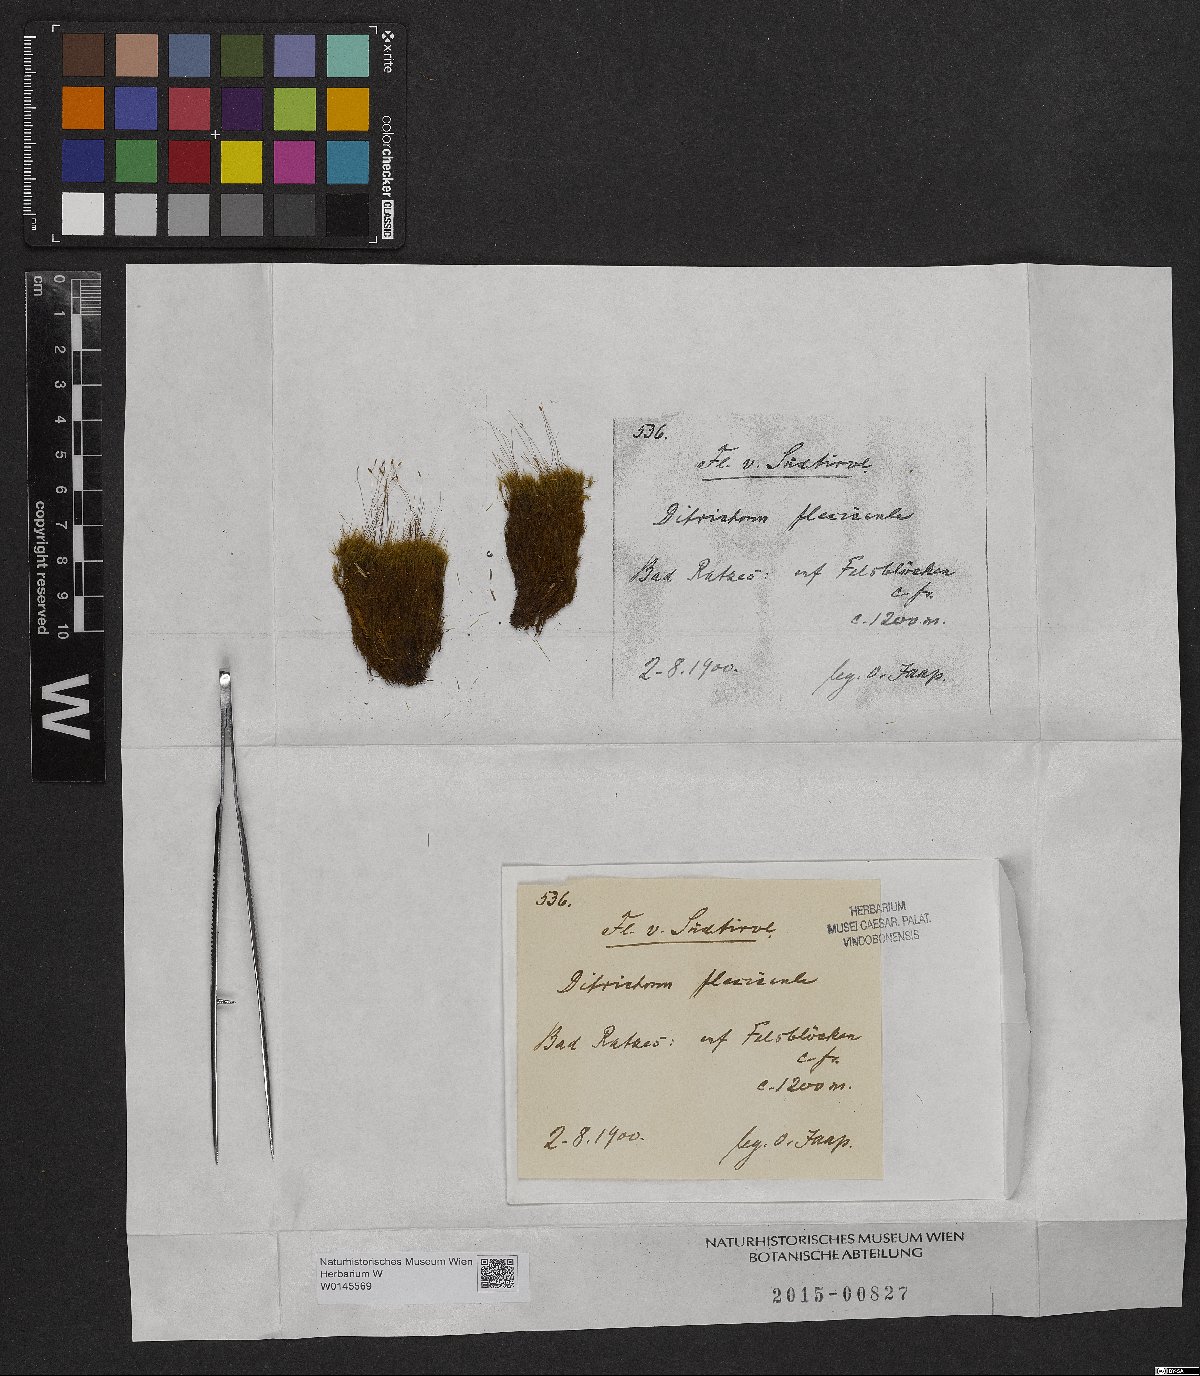 x-rite
colorchecker CLASSIC
cm
0 1 2 3 4 5 6 7 8 9 10
copyright reserved
W
536.
Fl. v. Südtirol.
Ditrichum flexicaule
Bad Ratzes: auf Felsblöcken
c. fr.
c. 1200 m.
2-8.1900.
leg. O. Jaap.
536.
Fl. v. Südtirol.
HERBARIUM
MUSEI CAESAR. PALAT.
VINDOBONENSIS
Ditrichum flexicaule
Bad Ratzes: auf Felsblöcken
c. fr.
c. 1200 m.
2-8.1900.
leg. O. Jaap.
NATURHISTORISCHES MUSEUM WIEN
BOTANISCHE ABTEILUNG
2015-00827
Naturhistorisches Museum Wien
Herbarium W
W0145569
BY-SA